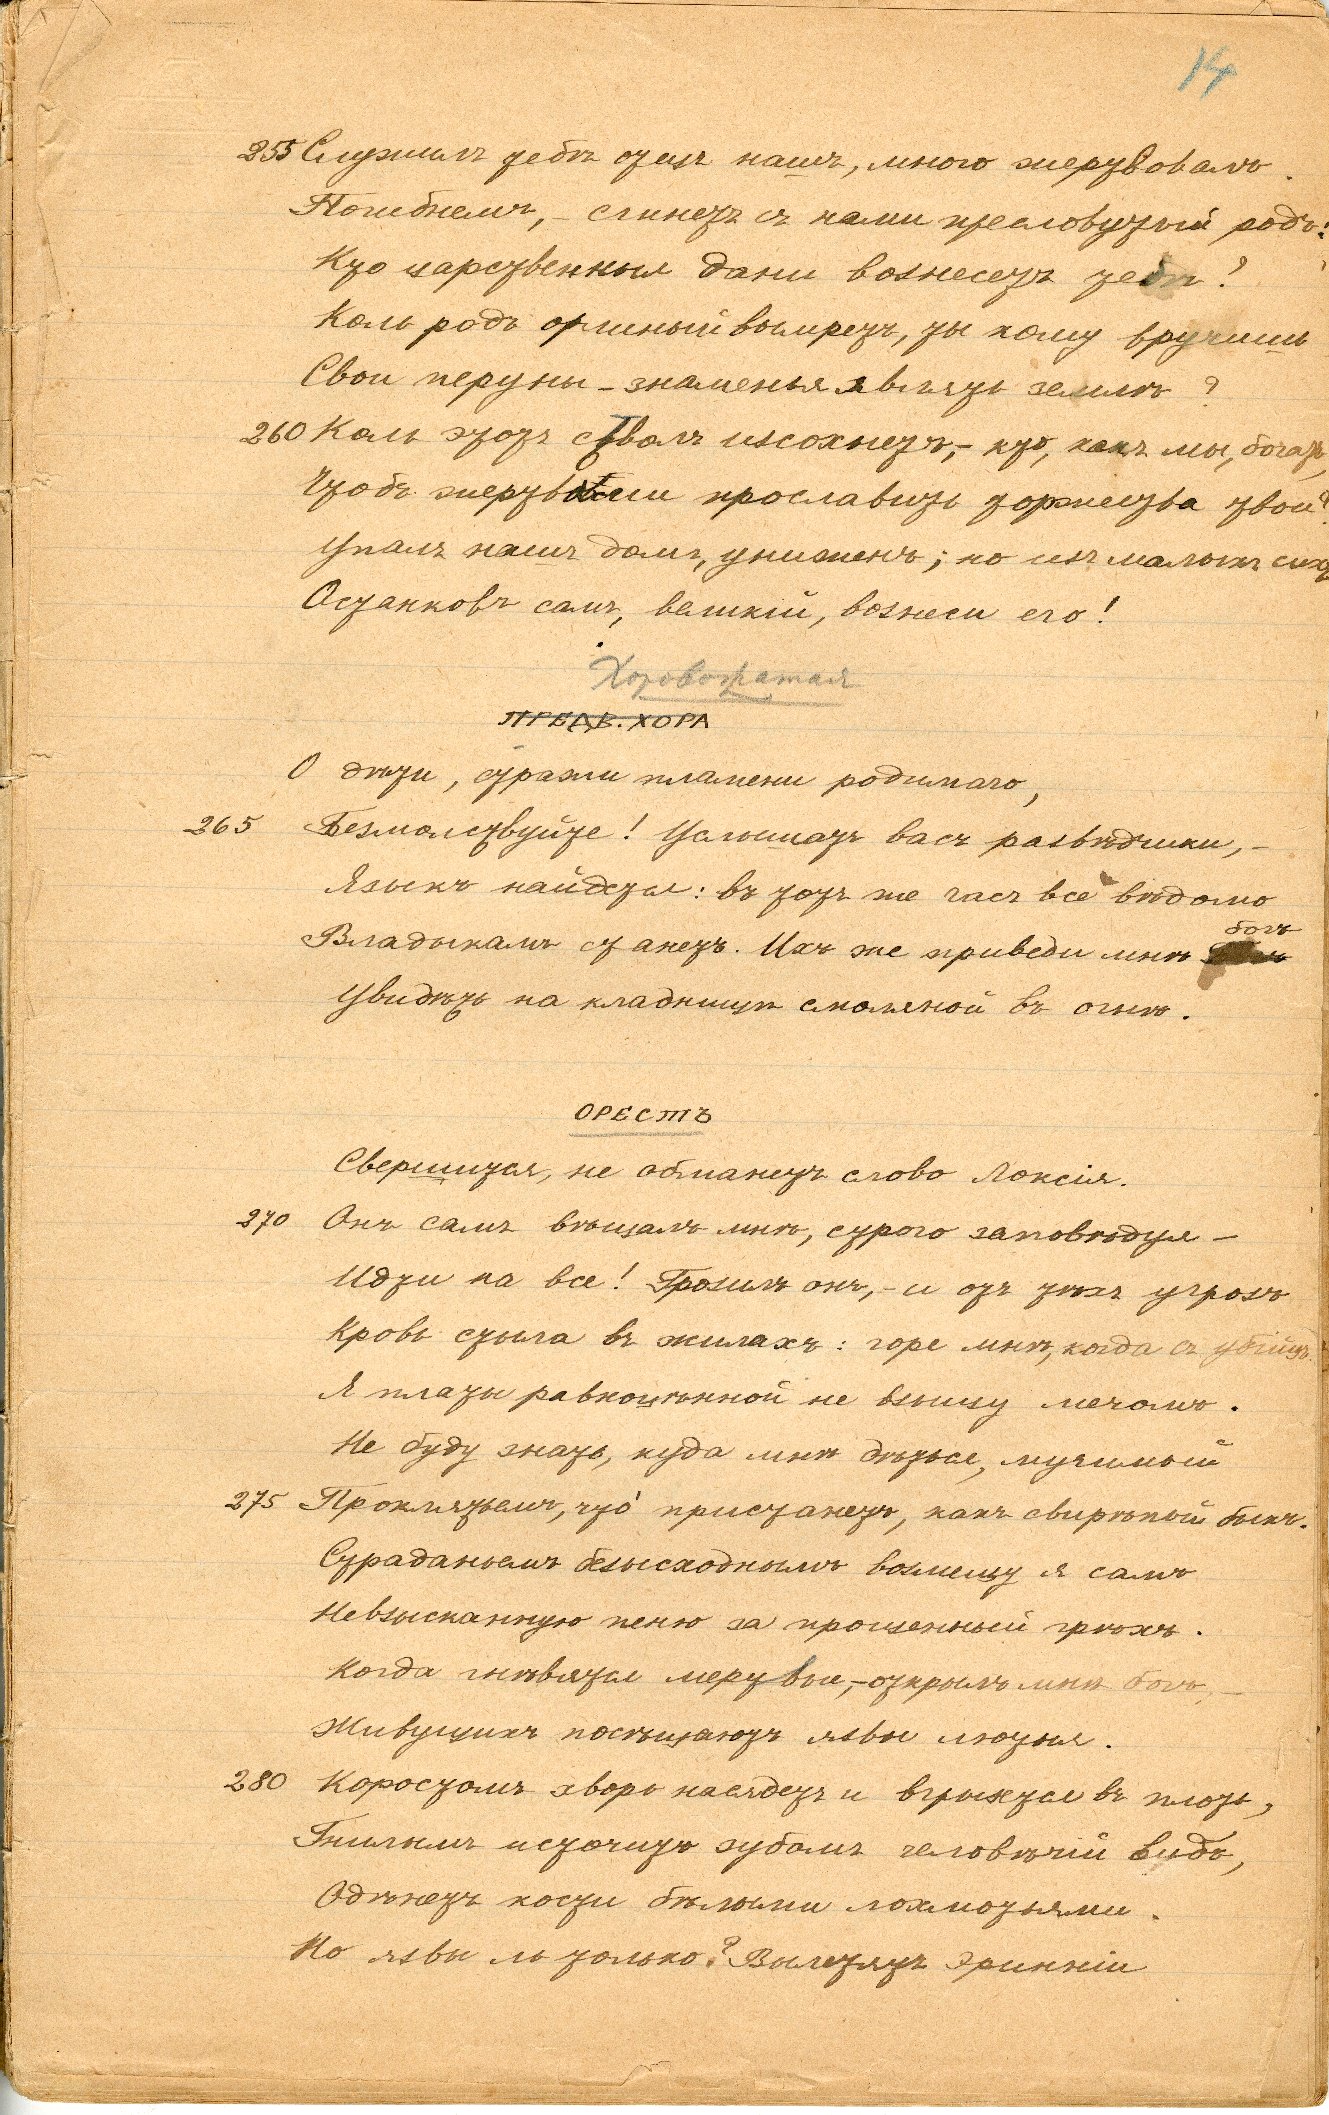 14
255 Служилъ тебѣ отецъ нашъ, много жертвовалъ.
Погибнемъ, – сгинетъ съ нами пресловутый родъ:
Кто царственныя дани вознесетъ тебѣ?
Коль родъ орлиный вымретъ, ты кому вручишь
Свои перуны – знаменья являть землѣ?
260 Коль этотъ стволъ изсохнетъ, – кто, какъ мы, богатъ,
Чтобъ жертвами прославить торжества твои?
Упалъ нашъ домъ, униженъ; но изъ малыхъ сихъ
Останковъ самъ, великій, вознеси его!
Хоровожатая
ПРЕДВ. ХОРА
О дѣти, стражи пламени родимаго,
265 Безмолствуйте! Услышатъ васъ развѣдчики, –
Языкъ найдется: въ тотъ же часъ все вѣдомо
Владыкамъ станетъ. Ихъ же приведи мнѣ
богъ
Увидѣть на кладнищѣ смоляной въ огнѣ.
ОРЕСТЪ
Свершится, не обманетъ слово Локсія.
270 Онъ самъ вѣщалъ мнѣ, строго заповѣдуя –
Идти на все! Грозилъ онъ, – и отъ тѣхъ угрозъ
Кровь стыла въ жилахъ: горе мнѣ, когда съ убійцъ
Я платы равноцѣнной не взыщу мечомъ.
Не буду знать, куда мнѣ дѣться, мучимый
275 Проклятьемъ, что пристанетъ, какъ свирѣпый быкъ.
Страданьемъ безысходнымъ возмещу я самъ
Невзысканную пеню за прощенный грѣхъ.
Когда гнѣвятся мертвые, – открылъ мнѣ богъ, –
Живущихъ посѣщаютъ язвы лютыя.
280 Коростомъ хворь насядетъ и вгрызется въ плоть,
Гнилымъ источитъ зубомъ человѣчій видъ,
Одѣнетъ кости бѣлыми лохмотьями.
Но язвы ль только? Вылетятъ Эринніи